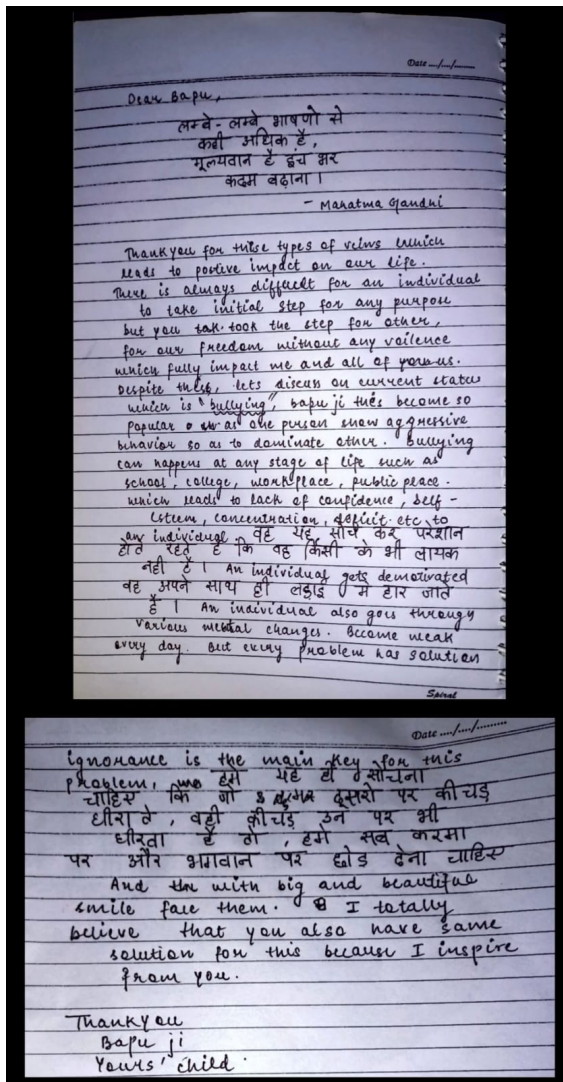 Date .../.../......
Dear Bapu,
लम्बे-लम्बे भाषणो से
कही अधिक है,
मूल्यवान है इंच भर
कदम बढ़ाना।
- Mahatma Gandhi
Thankyou for these types of veiws which
leads to postive impact on our life.
There is always difficult for an individual
to take initial step for any purpose
but you took the step for other,
for our freedom without any voilence
which fully impact me and all of us.
Despite this, lets discuss on current status
which is "bullying", bapu ji this become so
popular as one person show aggressive
behavior so as to dominate other. Bullying
can happens at any stage of life such as
school, college, workplace, public peace.
which leads to lack of confidence, self-
esteem, concentration, deficit etc to
an individual वह यह सोच कर परेशान
होते रहते है कि वह किसी के भी लायक
नही है। An individual gets demotivated
वह अपने साथ ही लड़ाई मे हार जाते
है। An individual also goes through
various mental changes. Become weak
every day. But every problem has solution
Spiral
Date ..../..../.........
ignorance is the main key for this
problem, हमे यह ही सोचना
चाहिए कि जो दूसरो पर कीचड़
धीरा वे, वही कीचड़ उन पर भी
धीरता है तो, हमे सब करमा
पर और भगवान पर छोड़ देना चाहिए
And with big and beautiful
smile face them. I totally
believe that you also have same
solution for this because I inspire
from you.
Thankyou
Bapu ji
Yours' child.